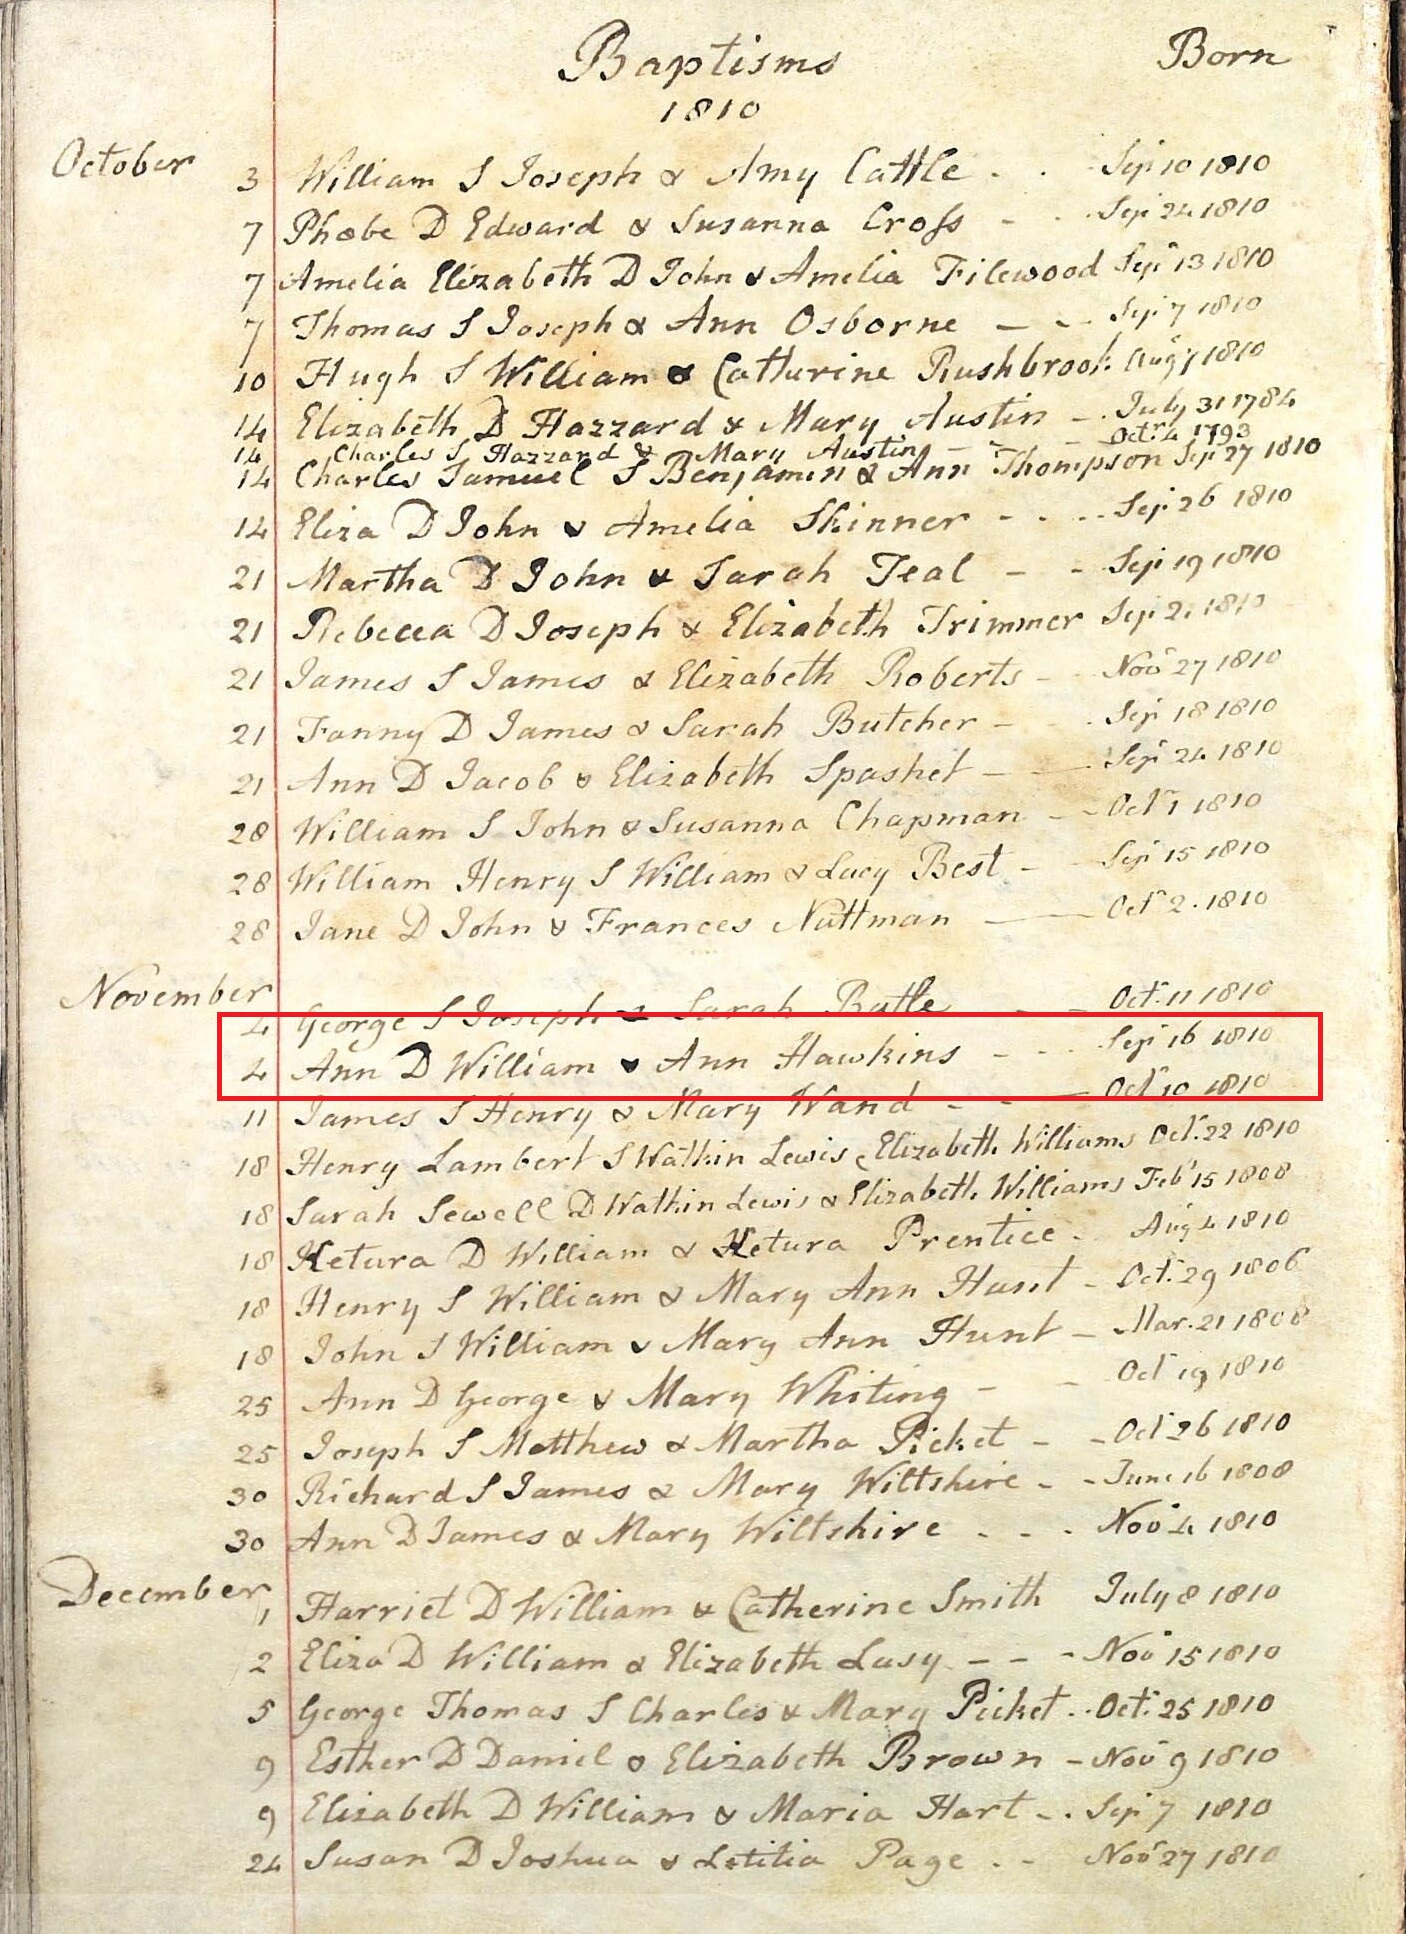 Baptisms Born
1810
October 3 William S Joseph & Amy Cattle - - Sep 10 1810
7 Phœbe D Edward & Susanna Cross - - Sep 24 1810
7 Amelia Elizabeth D John & Amelia Filewood Sepr 13 1810
7 Thomas S Joseph & Ann Osborne - - - Sep 7 1810
10 Hugh S William & Catturine Rushbrook Aug 7 1810
14 Elizabeth D Hazzard & Mary Austin - July 31 1784
14 Charles S Hazzard & Mary Austin - - - Octr 4 1793
14 Charles Samuel S Benjamin & Ann Thompson Sep 27 1810
14 Eliza D John & Amelia Skinner - - - - Sep 26 1810
21 Martha D John & Sarah Teal - - Sep 19 1810
21 Rebecca D Joseph & Elizabeth Trimmer Sep 21 1810
21 James S James & Elizabeth Roberts - Nov 27 1810
21 Fanny D James & Sarah Butcher - - Sep 18 1810
21 Ann D Jacob & Elizabeth Spashet - - Sep 24 1810
28 William S John & Susanna Chapman - - Octr 1 1810
28 William Henry S William & Lucy Best - Sep 15 1810
28 Jane D John & Frances Nuttman - - Oct 2. 1810
November
4 George S Joseph & Sarah Butle - - Oct. 11 1810
4 Ann D William & Ann Hawkins - - - Sep 16 1810
11 James S Henry & Mary Wand - - - Octr 10 1810
18 Henry Lambert S Watkin Lewis & Elizabeth Williams Oct. 22 1810
18 Sarah Sewell D Watkin Lewis & Elizabeth Williams Feb 15 1808
18 Ketura D William & Ketura Prentice - Aug 4 1810
18 Henry S William & Mary Ann Hunt - Oct. 29 1806
18 John S William & Mary Ann Hunt - Mar. 21 1808
25 Ann D George & Mary Whiting - - Oct 19 1810
25 Joseph S Matthew & Martha Picket - - Oct 26 1810
30 Richard S James & Mary Wiltshire - - June 16 1808
30 Ann D James & Mary Wiltshire - - - Nov 4 1810
December
1 Harriet D William & Catherine Smith July 8 1810
2 Eliza D William & Elizabeth Lusy - - - Nov 15 1810
5 George Thomas S Charles & Mary Picket . . Oct. 25 1810
9 Esther D Daniel & Elizabeth Brown - Nov 9 1810
9 Elizabeth D William & Maria Hart - . Sep 7 1810
24 Susan D Joshua & Letitia Page . - Nov 27 1810